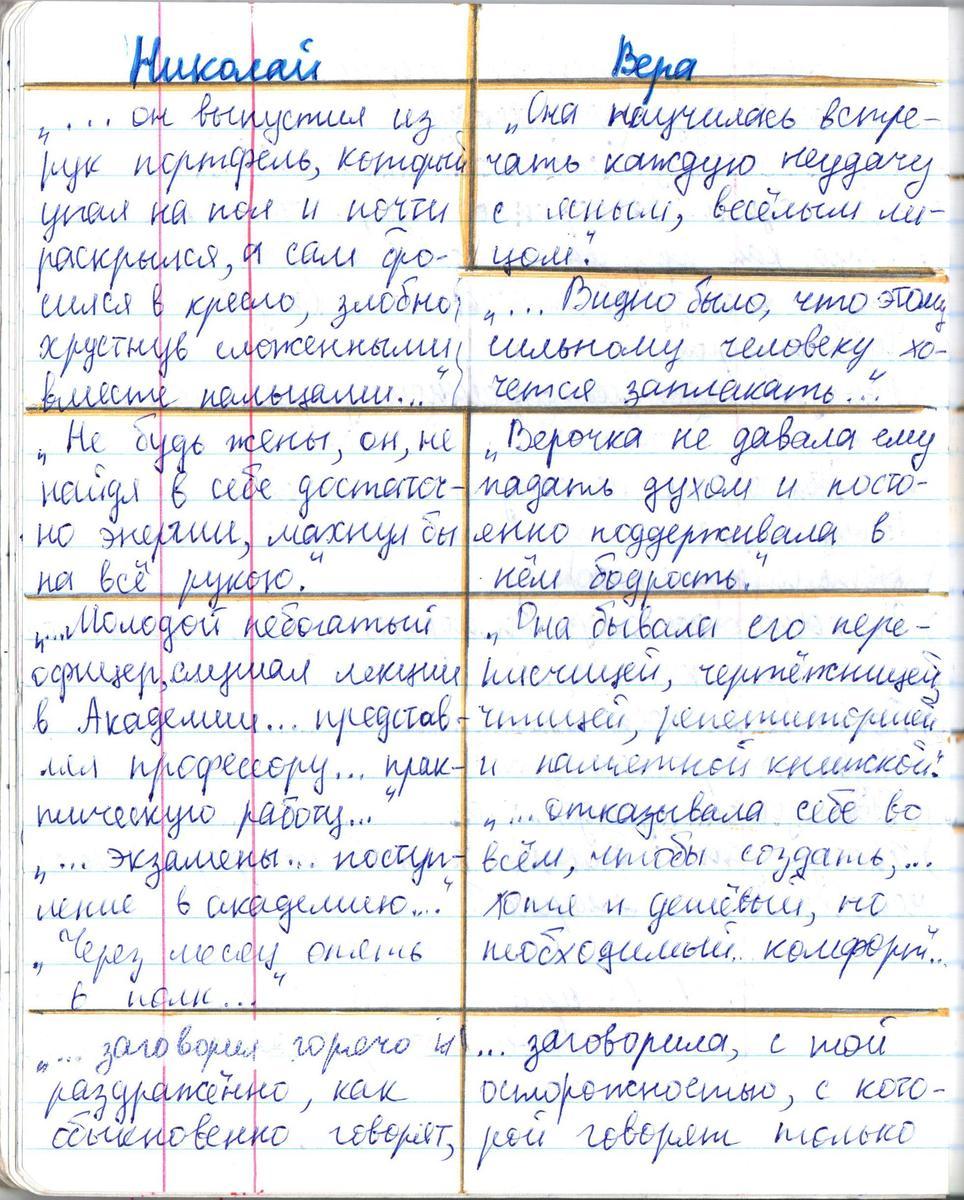 Николай
„... он выпустил из
рук портфель, который
упал на пол и почти
раскрылся, а сам бро-
сился в кресло, злобно
хрустнув сложенными
вместе пальцами..."
„Не будь жены, он, не
найдя в себе достаточ-
но энергии, махнул бы
на всё рукою."
„...Молодой небогатый
офицер, слушал лекции
в Академии... представ-
лял профессору... прак-
тическую работу..."
„... экзамены... поступ-
ление в академию..."
„Через месяц опять
в полк..."
„... заговорил горячо и
раздражённо, как
обыкновенно говорят,
Вера
„Она научилась встре-
чать каждую неудачу
с ясным, весёлым ли-
цом".
„... Видно было, что этому
сильному человеку хо-
чется заплакать..."
„Верочка не давала ему
падать духом и посто-
янно поддерживала в
нём бодрость."
„Она бывала его пере-
писчицей, чертёжницей,
чтицей, репетиторшей
и памятной книжкой."
„... отказывала себе во
всём, чтобы создать,...
хотя и дешёвый, но
необходимый.. комфорт"..
... заговорила, с той
осторожностью, с кото-
рой говорят только